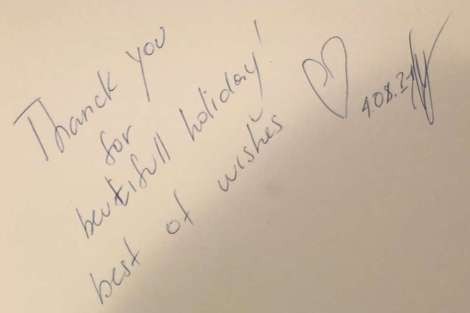 Thanck you
for
beutifull holiday!
best of wishes
408.